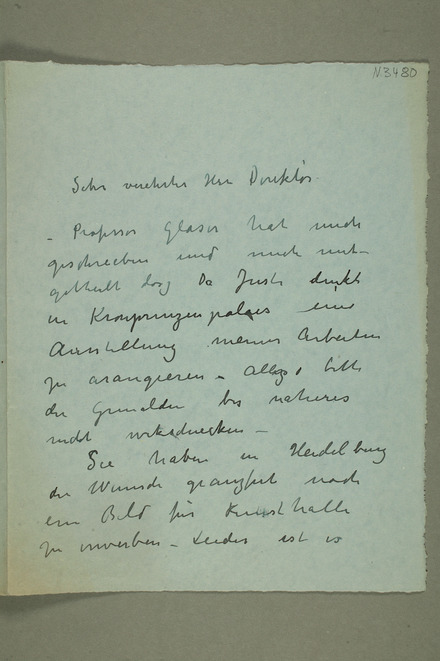 N3480
Sehr verehrter Herr Direktör.
- Professor Glaser hat mich
geschrieben und mich mit-
getheilt das Dr Justi denkt
in Kronprinzenpalais eine
Ausstellung meiner Arbeiten
zu arangieren -
die Gemälden bis näheres
nicht
Sie haben in Heidelberg
der Wunsch noch
ein Bild für Kunsthalle
zu erwerben - Leider ist es